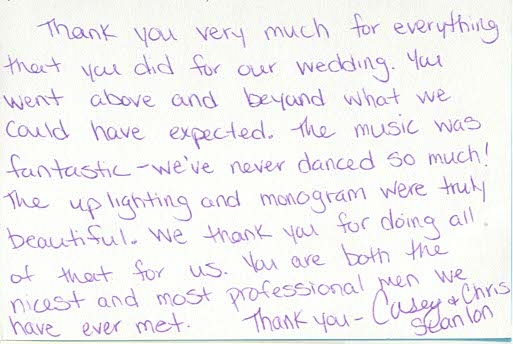 Thank you very much for everything
that you did for our wedding. You
went above and beyond what we
could have expected. The music was
fantastic - we've never danced so much!
The uplighting and monogram were truly
beautiful. We thank you for doing all
of that for us. You are both the
nicest and most professional men we
have ever met. Thank you - Casey & Chris
Scanlon